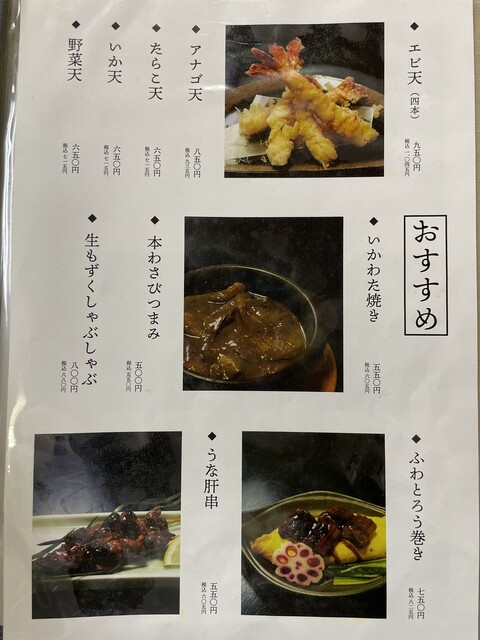 ◆エビ天（四本）
九五〇円
税込一、〇四五円
◆アナゴ天
八五〇円
税込九三五円
◆たらこ天
六五〇円
税込七一五円
◆いか天
六五〇円
税込七一五円
◆野菜天
六五〇円
税込七一五円
おすすめ
◆いかわた焼き
五五〇円
税込六〇五円
◆本わさびつまみ
五〇〇円
税込五五〇円
◆生もずくしゃぶしゃぶ
八〇〇円
税込八八〇円
◆ふわとろう巻き
七五〇円
税込八二五円
◆うな肝串
五五〇円
税込六〇五円